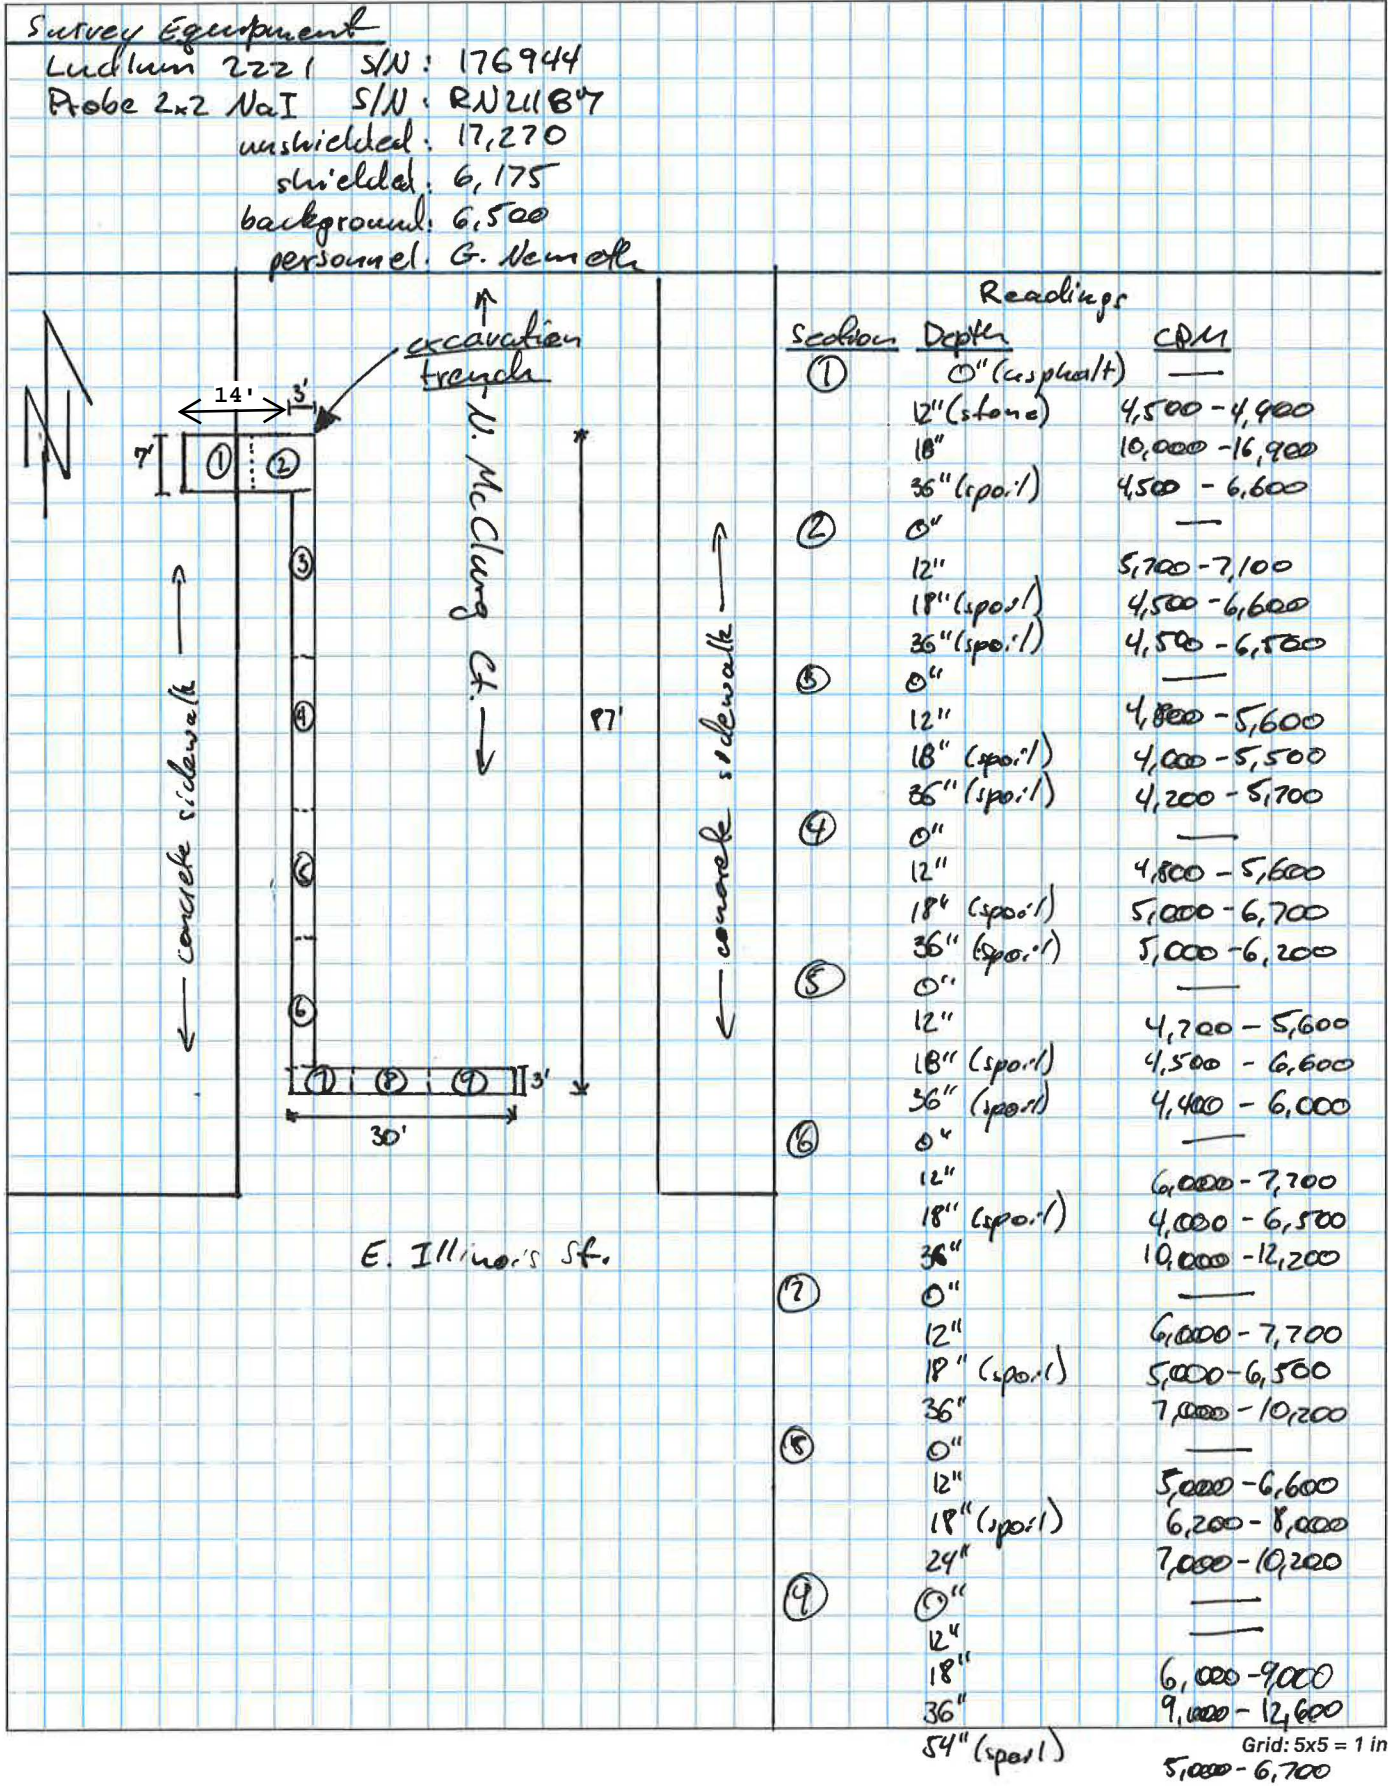 Survey Equipment
Ludlum 2221 S/N: 176944
Probe 2x2 NaI S/N: RN211847
unshielded: 17,270
shielded: 6,175
background: 6,500
personnel: G. Nemeth
N
excavation
trench
14'
3'
7'
① ②
③
④
⑤
⑥
⑦ ⑧ ⑨
3'
30'
87'
N. McClurg Ct.
concrete sidewalk
concrete sidewalk
E. Illinois St.
Readings
Section Depth CPM
① 0" (asphalt) —
12" (stone) 4,500 - 4,900
18" 10,000 - 16,900
36" (spoil) 4,500 - 6,600
② 0" —
12" 5,700 - 7,100
18" (spoil) 4,500 - 6,600
36" (spoil) 4,500 - 6,500
③ 0" —
12" 4,800 - 5,600
18" (spoil) 4,000 - 5,500
36" (spoil) 4,200 - 5,700
④ 0" —
12" 4,800 - 5,600
18" (spoil) 5,000 - 6,700
36" (spoil) 5,000 - 6,200
⑤ 0" —
12" 4,700 - 5,600
18" (spoil) 4,500 - 6,600
36" (spoil) 4,400 - 6,000
⑥ 0" —
12" 6,000 - 7,700
18" (spoil) 4,000 - 6,500
36" 10,000 - 12,200
⑦ 0" —
12" 6,000 - 7,700
18" (spoil) 5,000 - 6,500
36" 7,000 - 10,200
⑧ 0" —
12" 5,000 - 6,600
18" (spoil) 6,200 - 8,000
24" 7,000 - 10,200
⑨ 0" —
12" —
18" 6,000 - 9,000
36" 9,000 - 12,600
54" (spoil) 5,000 - 6,700
Grid: 5x5 = 1 in